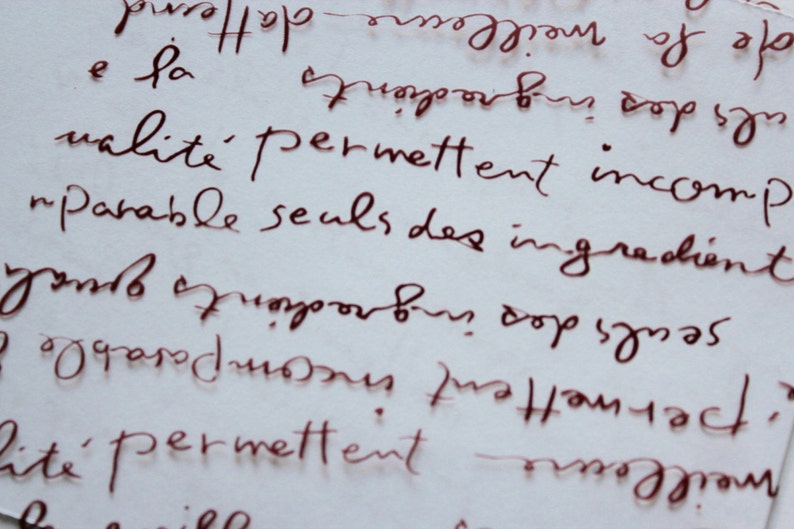 de la meilleure datteind
uls des ingredients
e la
ualité permettent incomp
mparable seuls des ingredient
seuls des ingredients quali
permettent incomparable
lité permettent
meilleure